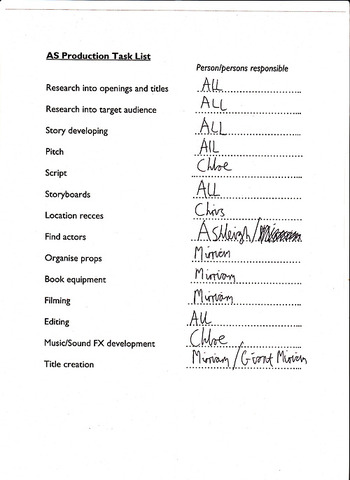 AS Production Task List
Person/persons responsible
Research into openings and titles ALL
Research into target audience ALL
Story developing ALL
Pitch All
Script Chloe
Storyboards ALL
Location recces Chirs
Find actors Ashleigh/
Organise props Mirrien
Book equipment Mirriam
Filming Mirriam
Editing All
Music/Sound FX development Chloe
Title creation Mirriam/Grant Mirrien